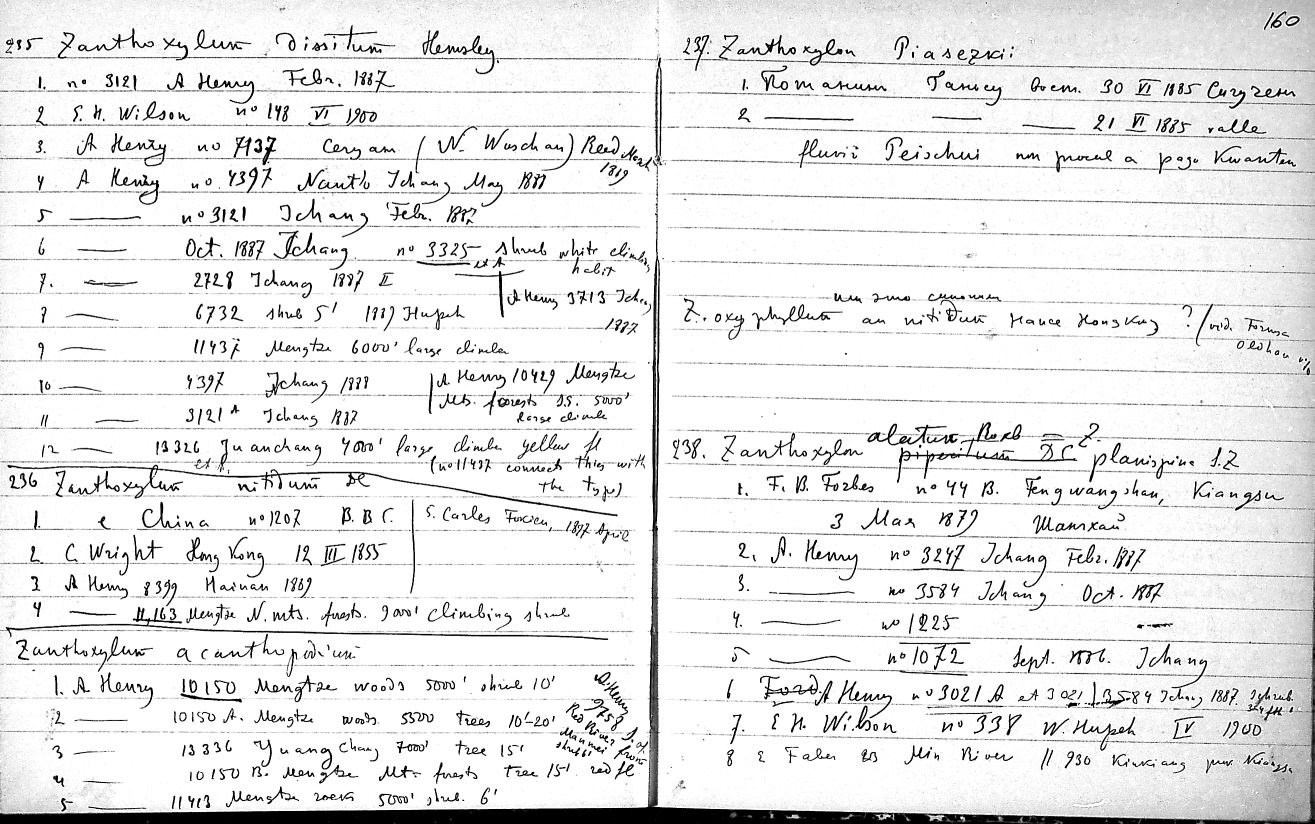 235 Zanthoxylum Dissitum Hemsley.
1. no 3121 A Henry Febr. 1887
2 E. H. Wilson no 148 VI 1900
3. A Henry no 7137 (N. Wuschan)
4 A Henry no 4397 Nanto Ichang May 1887
5 —— no 3121 Ichang Febr. 1887
6 —— Oct. 1887 Ichang no 3325 shrub white climbing habit
et A
7. —— 2728 Ichang 1887 II
A Henry 3713 Ichang 1887
8 —— 6732 shrub 5' 1889 Hupeh
9 —— 11437 Mengtze 6000' large climber
10 —— 4397 Ichang 1888
A Henry 10429 Mengtze
Mts. forests 5000'
large climb
11 —— 3121 A Ichang 1887
12 —— 13326 Yuanchang 4000' large climber yellow fl
(no 11437 connects this with
the type)
236 Zanthoxylum nitidum DC
1. e China no 1207 B. B C.
S. Carles 1897 April
2. C. Wright Hong Kong 12 III 1855
3 A Henry 8399 Hainan 1869
4 —— 11,163 Mengtze N. mts. forests. 9000' climbing shrub
Zanthoxylum acanthopodium
1. A Henry 10150 Mengtze woods 5000' shrub 10'
2 —— 10150 A. Mengtze woods 5500 trees 10'-20'
A. Henry
Red River from
Manmei
shrub 6'
3 —— 13336 Yuang Chang 7000' tree 15'
4 —— 10150 B. Mengtze Mts forests tree 15' red fl
5 —— 11413 Mengtze rocks 5000' shrub. 6'
160
237. Zanthoxylon Piasezkii
1. Потанин Ганьсу вост. 30 VI 1885
2 —— —— —— 21 VI 1885 valle
fluvii Peischui non procul a pago Kwanten
или это синоним
Z. oxyphyllum an nitidum Hance Hongkong ? (vid. Formosa
Oldham
238. Zanthoxylon alatum Roxb = Z.
piperitum DC planispina S.Z
1. F. B. Forbes no 44 B. Fengwangshan, Kiangsu
3 Мая 1879 Шанхай
2. A. Henry no 3247 Ichang Febr. 1887
3. —— no 3584 Ichang Oct. 1887
4. —— no 1225 ——
5 —— no 1072 Sept. 1886. Ichang
6 Ford A Henry no 3021 A et 3021 3584 Ichang 1887. shrub
7. E H. Wilson no 338 W. Hupeh IV 1900
8 E Faber Min River || 930 Kiukiang prov Kiangsu